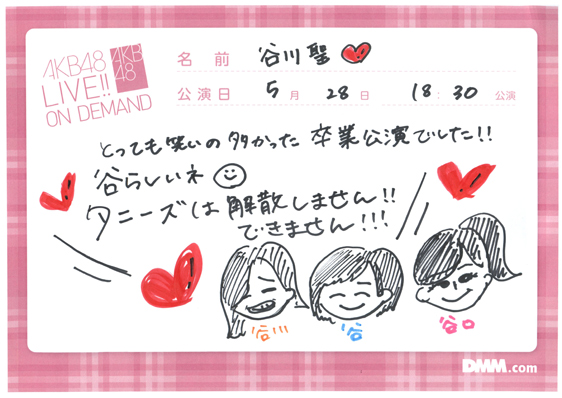 AKB48
LIVE!!
ON DEMAND
AKB
48
名 前 谷川聖
公演日 5月 28日 18:30 公演
とっても笑いの多かった 卒業公演でした!!
谷らしいネ
タニーズは解散しません!!
できません!!!
谷川
谷
谷口
DMM.com